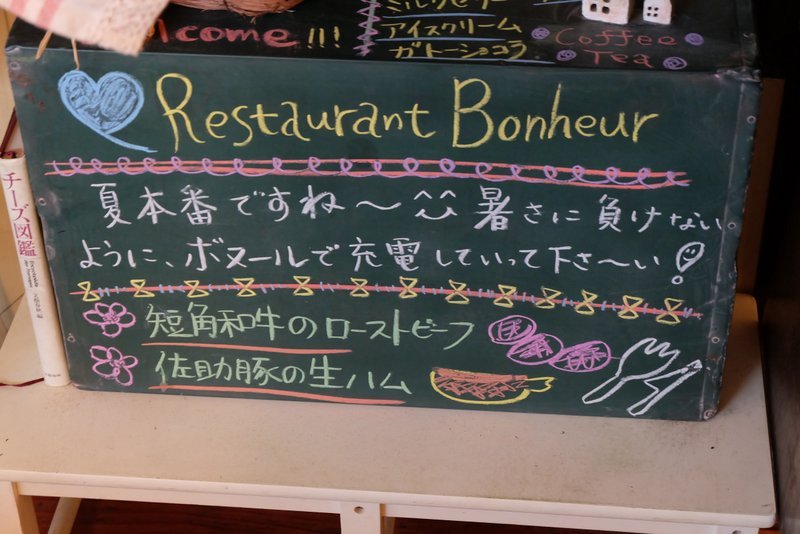 アイスクリーム
lcome!!!
ガトーショコラ
Coffee
Tea
Restaurant Bonheur
夏本番ですね〜 暑さに負けない
ように、ボヌールで充電していって下さ〜い!
短角和牛のローストビーフ
佐助豚の生ハム
チーズ図鑑